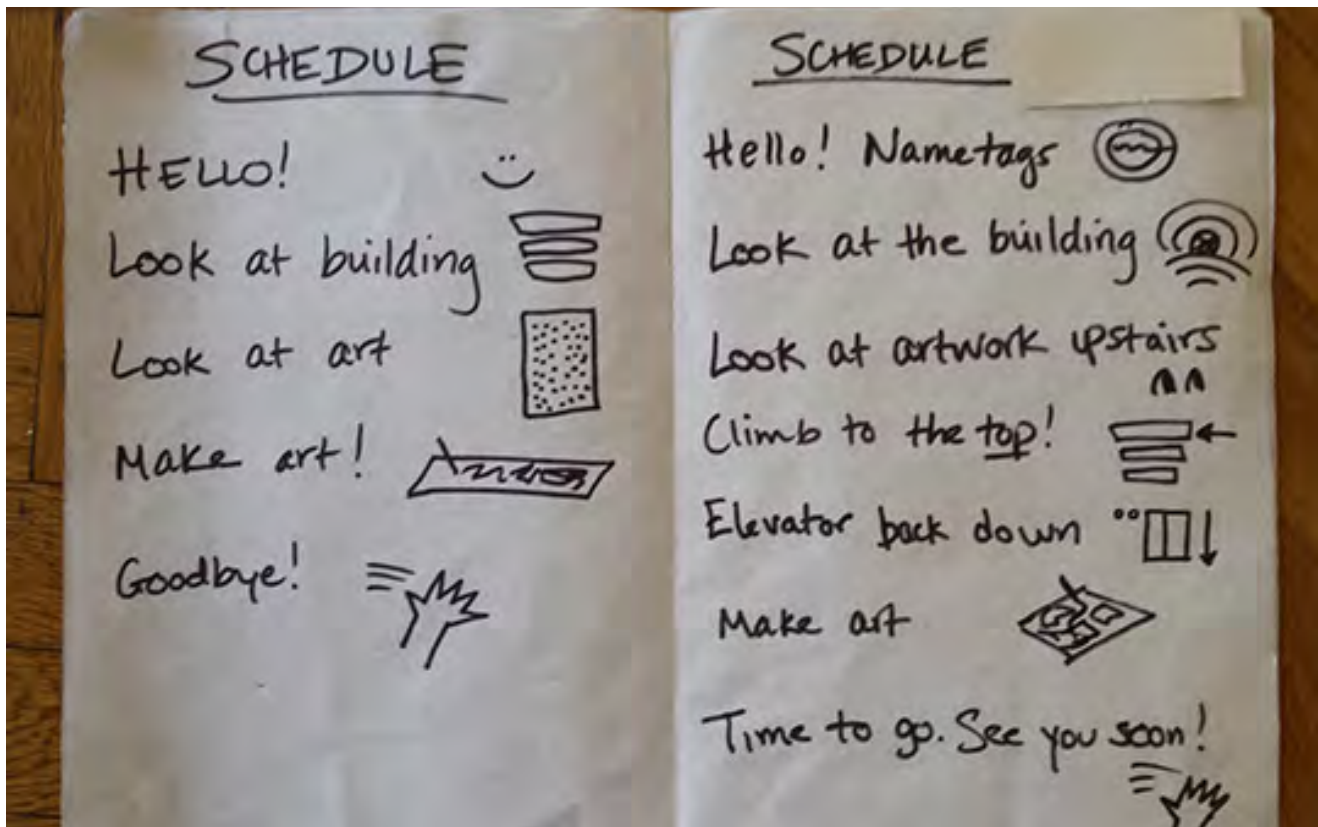 SCHEDULE
HELLO!
Look at building
Look at art
Make art!
Goodbye!
SCHEDULE
Hello! Nametags
Look at the building
Look at artwork upstairs
Climb to the top!
Elevator back down
Make art
Time to go. See you soon!